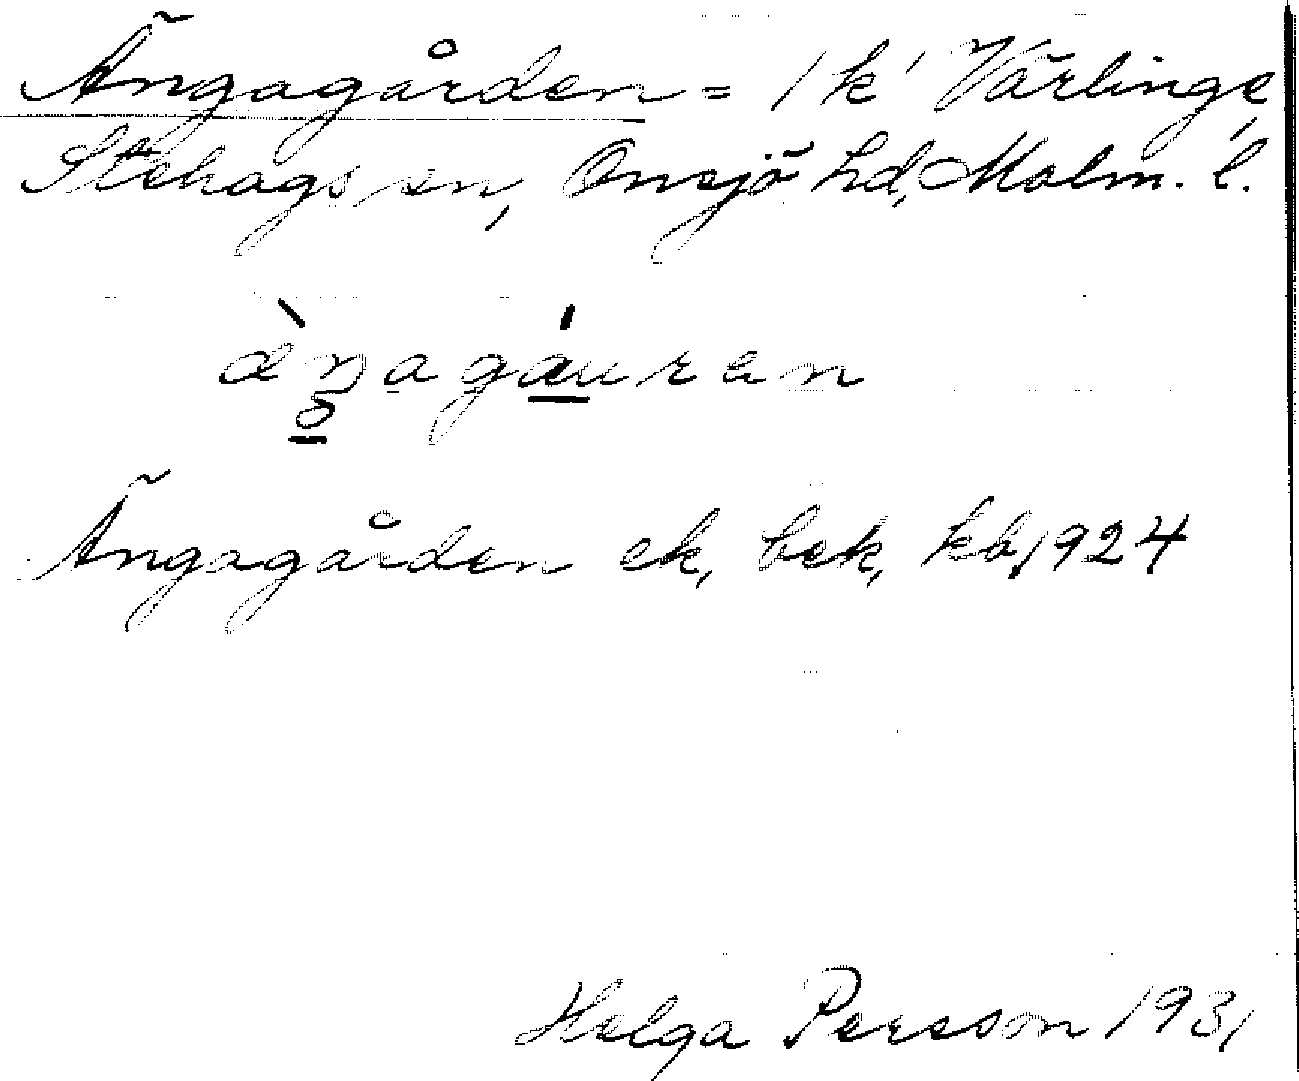 Ängagården = 1 k' Värlinge,
Stehags sn, Onsjö hd, Malm. l.
àŋagáuran
o
Ängagården ek, bek, kb, 1924
Helga Persson 1931